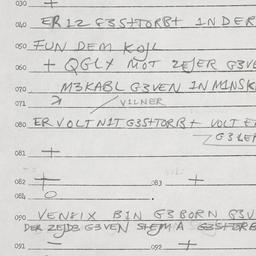 030 +
040 ER IZ G3STORBT IN DER
050 FUN DEM KOJL
060 + QGLX MOT ZEJER G3VE
070 M3KABL G3VEN IN MINSK
071 VILNER
080 ER VOLT NIT G3STORBT VOLT E
G3LE
081 +
082 + 083 +
084 O .
090 VENZIX BIN G3BORN G3V
DER ZEJD3 G3VEN G3STORB
091 – 092 +